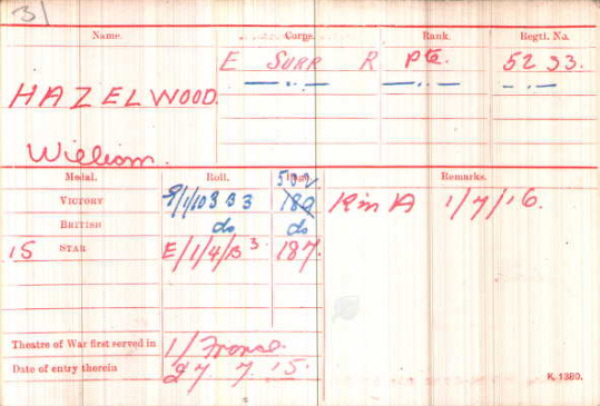 31
Name. Corps. Rank. Regtl. No.
E SURR R Pte. 5233.
HAZELWOOD. —"— —"— —"—
William.
Medal. Roll. Page. Remarks.
502
VICTORY 180 K in A 1/7/16.
BRITISH do do
15 STAR E/1/4/B3 187.
Theatre of War first served in 1/ France.
Date of entry therein 27 7 15.
K. 1380.